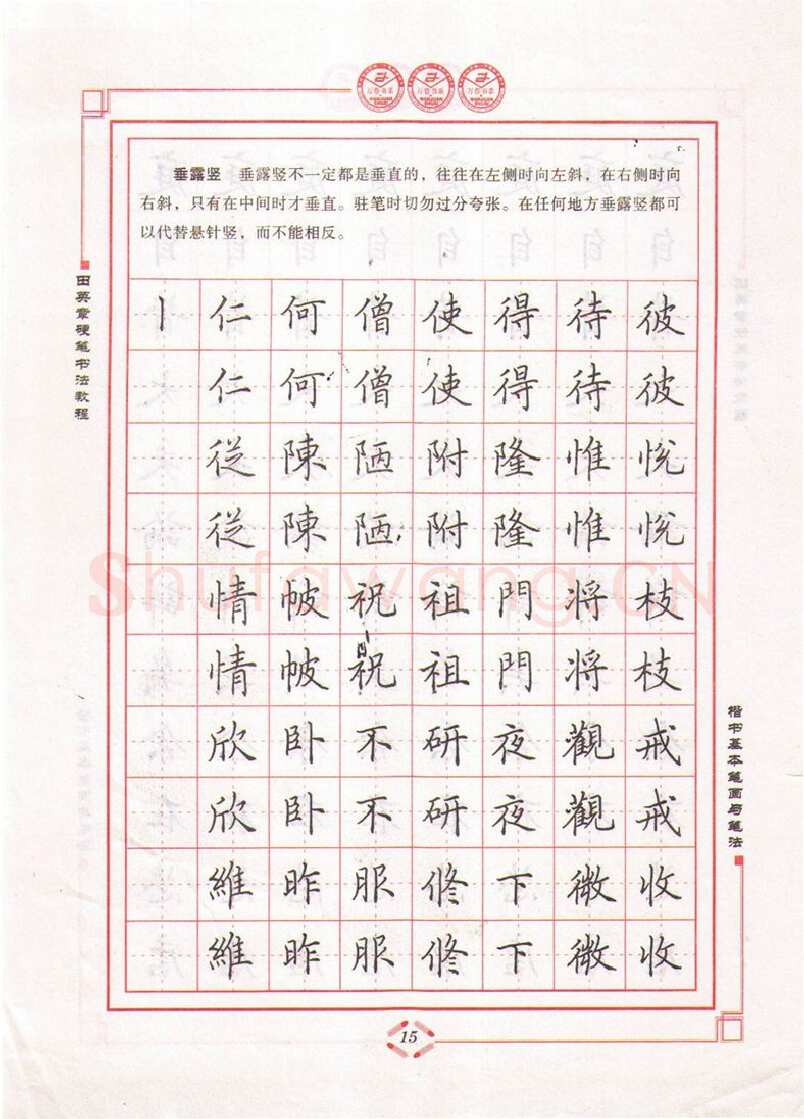 垂露竖 垂露竖不一定都是垂直的，往往在左侧时向左斜，在右侧时向
右斜，只有在中间时才垂直。驻笔时切勿过分夸张。在任何地方垂露竖都可
以代替悬针竖，而不能相反。
田英章硬笔书法教程
丨仁何僧使得待彼
仁何僧使得待彼
従陳陋附隆惟悦
従陳陋附隆惟悦
情帔祝祖門将枝
情帔祝祖門将枝
欣卧不研夜觀戒
欣卧不研夜觀戒
維昨服修下微收
維昨服修下微收
楷书基本笔画与笔法
Shufawang.CN
15